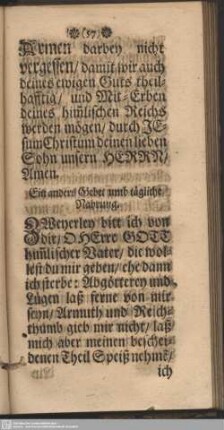 (57)
Armen darbey nicht
vergessen / damit wir auch
deines ewigen Guts theil-
hafftig / und Mit-Erben
deines him̃lischen Reichs
werden mögen / durch JE-
sum Christum deinen lieben
Sohn unsern HERRN /
Amen.
Ein anders Gebet umb tägliche
Nahrung.
ZWeyerley bitt ich von
dir / O HErre GOTT
him̃lischer Vater / die wol-
lest du mir geben / ehe dann
ich sterbe: Abgötterey und
Lügen laß ferne von mir
seyn / Armuth und Reich-
thumb gieb mir nicht / laß
mich aber meinen beschei-
denen Theil Speiß nehmẽ /
ich